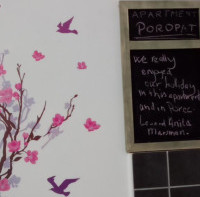 APARTMENT
POROPAT
we really
enjoyed
our holiday
in this apartment
and in Porec
and Anita